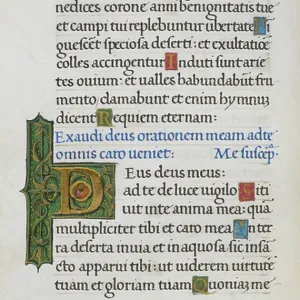 nedices corone anni benignitatis tue
et campi tui replebuntur ubertate Pi
guescẽt speciosa deserti: et exultatiõe
colles accingentur Induti sunt arie
tes ouium: et ualles habundabũt fru
mento clamabunt et enim hymnũ
dicent Requiem eternam:
Exaudi deus orationem meam ad te
omnis caro veniet: Me suscep̃.
Deus deus meus:
ad te de luce uigilo Siti
uit inte anima mea: quã
multipliciter tibi et caro mea In ter
ra deserta inuia et in aquosa sic insã
cto apparui tibi: ut uiderem uirtutẽ
tuam et gloriam tuam Quoniaz me